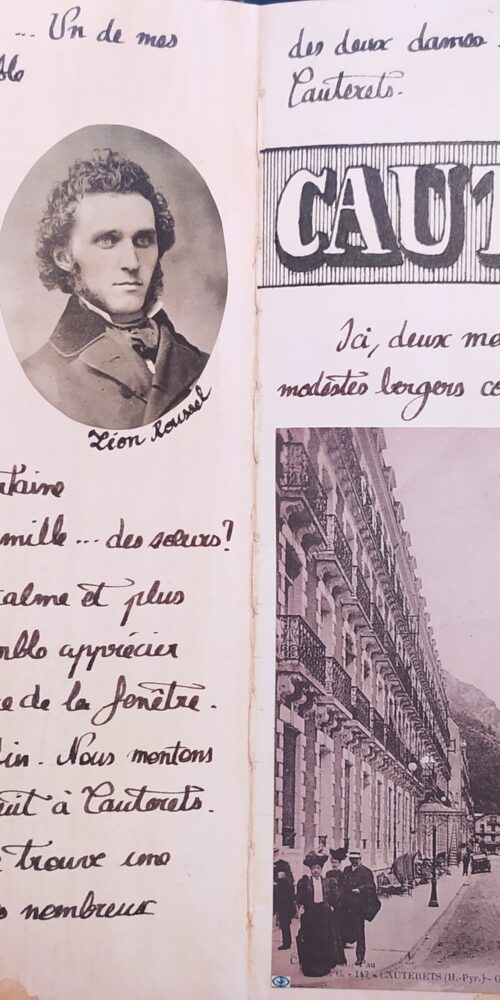 ... Un de mes
ble
Léon Roussel
taine
mille ... des sœurs?
calme et plus
mble apprécier
e de la fenêtre.
fin. Nous montons
uit à Cauterets.
trouve une
nombreux
des deux dames
Cauterets.
CAUT
Ici, deux me
modestes bergers co
Pau
C. - 147. - CAUTERETS (H.-Pyr.) - G